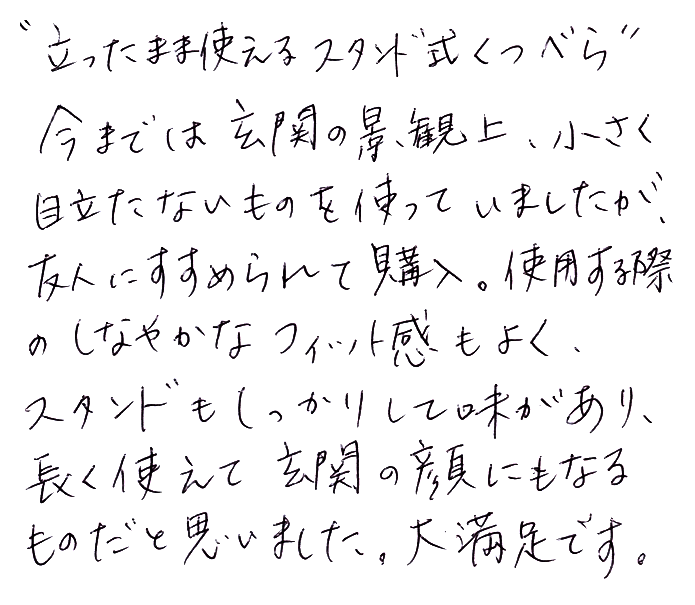 "立ったまま使えるスタンド式くつべら"
今までは玄関の景観上、小さく
目立たないものを使っていましたが、
友人にすすめられて購入。使用する際
のしなやかなフィット感もよく、
スタンドもしっかりして味があり、
長く使えて玄関の顔にもなる
ものだと思いました。大満足です。